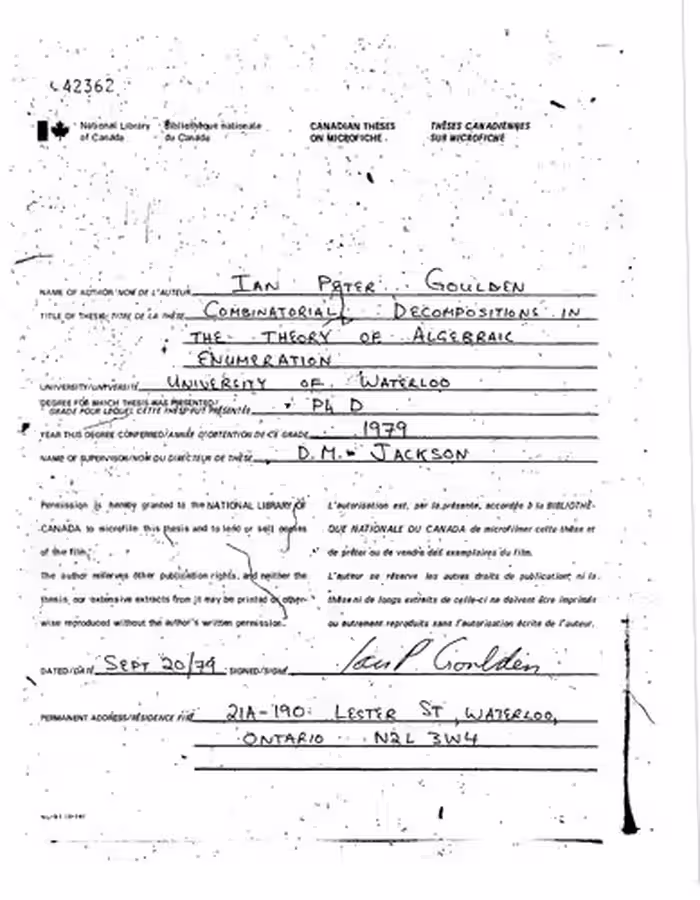 42362
National Library Bibliothèque nationale CANADIAN THESES THÈSES CANADIENNES
of Canada du Canada ON MICROFICHE SUR MICROFICHE
NAME OF AUTHOR/NOM DE L'AUTEUR IAN PETER GOULDEN
TITLE OF THESIS/TITRE DE LA THÈSE COMBINATORIAL DECOMPOSITIONS IN
THE THEORY OF ALGEBRAIC
ENUMERATION
UNIVERSITY/UNIVERSITÉ UNIVERSITY OF WATERLOO
DEGREE FOR WHICH THESIS WAS PRESENTED/
GRADE POUR LEQUEL CETTE THÈSE FUT PRÉSENTÉE Ph D
YEAR THIS DEGREE CONFERRED/ANNÉE D'OBTENTION DE CE GRADE 1979
NAME OF SUPERVISOR/NOM DU DIRECTEUR DE THÈSE D.M. JACKSON
Permission is hereby granted to the NATIONAL LIBRARY OF
CANADA to microfilm this thesis and to lend or sell copies
of the film.
The author reserves other publication rights, and neither the
thesis nor extensive extracts from it may be printed or other-
wise reproduced without the author's written permission.
L'autorisation est, par la présente, accordée à la BIBLIOTHÈ-
QUE NATIONALE DU CANADA de microfilmer cette thèse et
de prêter ou de vendre des exemplaires du film.
L'auteur se réserve les autres droits de publication; ni la
thèse ni de longs extraits de celle-ci ne doivent être imprimés
ou autrement reproduits sans l'autorisation écrite de l'auteur.
DATED/DATÉ SEPT 20/79 SIGNED/SIGNÉ Ian P Goulden
PERMANENT ADDRESS/RÉSIDENCE FIXE 21A-190 LESTER ST, WATERLOO,
ONTARIO N2L 3W4